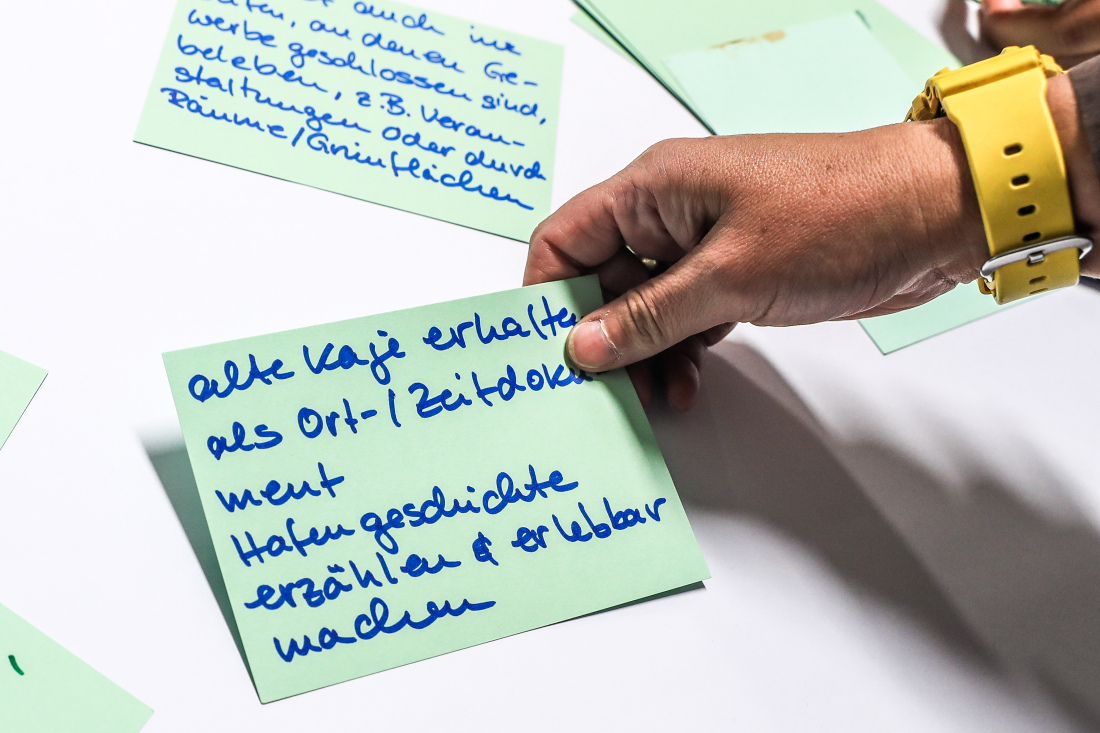 auch in
an denen Ge-
werbe geschlossen sind,
beleben, z.B. Veran-
staltungen oder durch
Räume/Grünflächen
alte Kaje erhalten
als Ort-/Zeitdoku
ment
Hafengeschichte
erzählen & erlebbar
machen